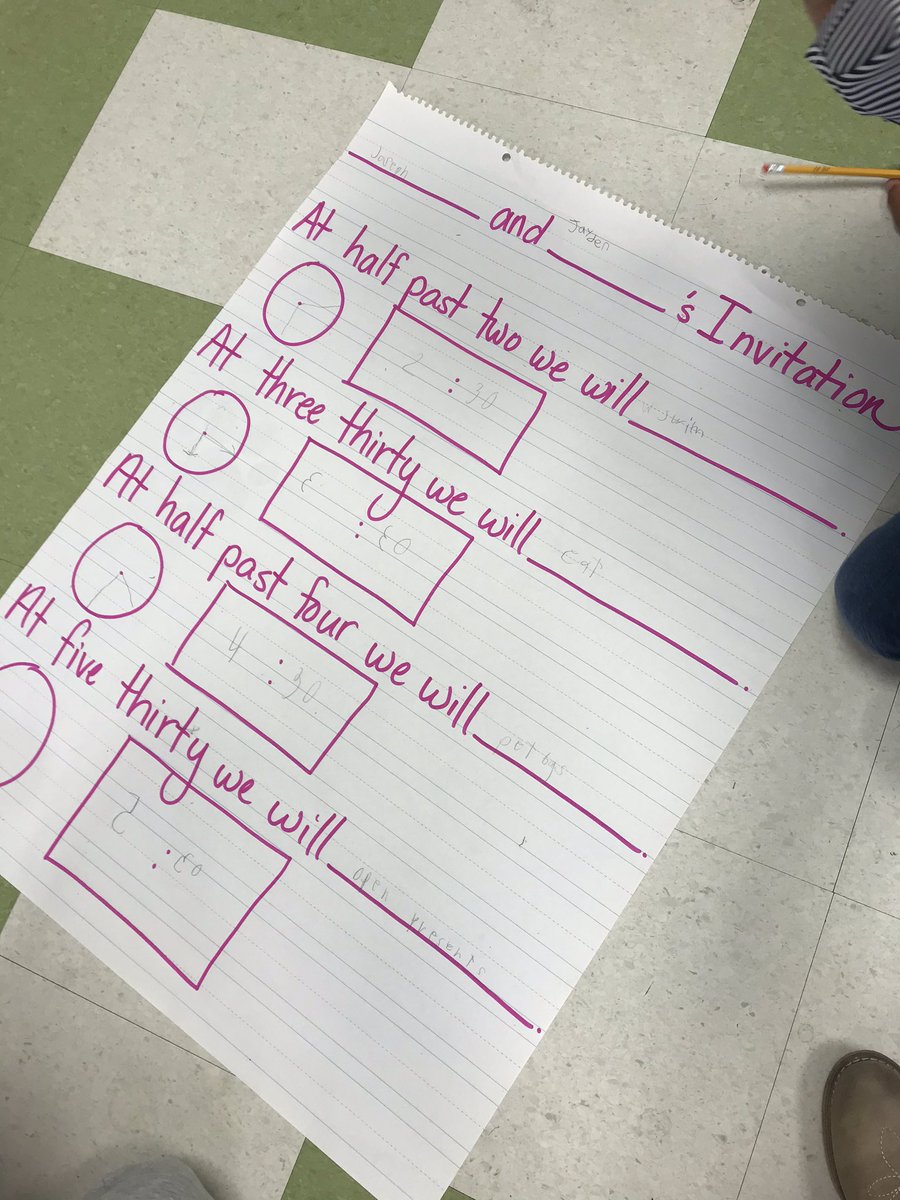 Joseph and Jayden 's Invitation
At half past two we will swim.
2:30
At three thirty we will eat.
3:30
At half past four we will.
4:30
At five thirty we will open presents.
5:30